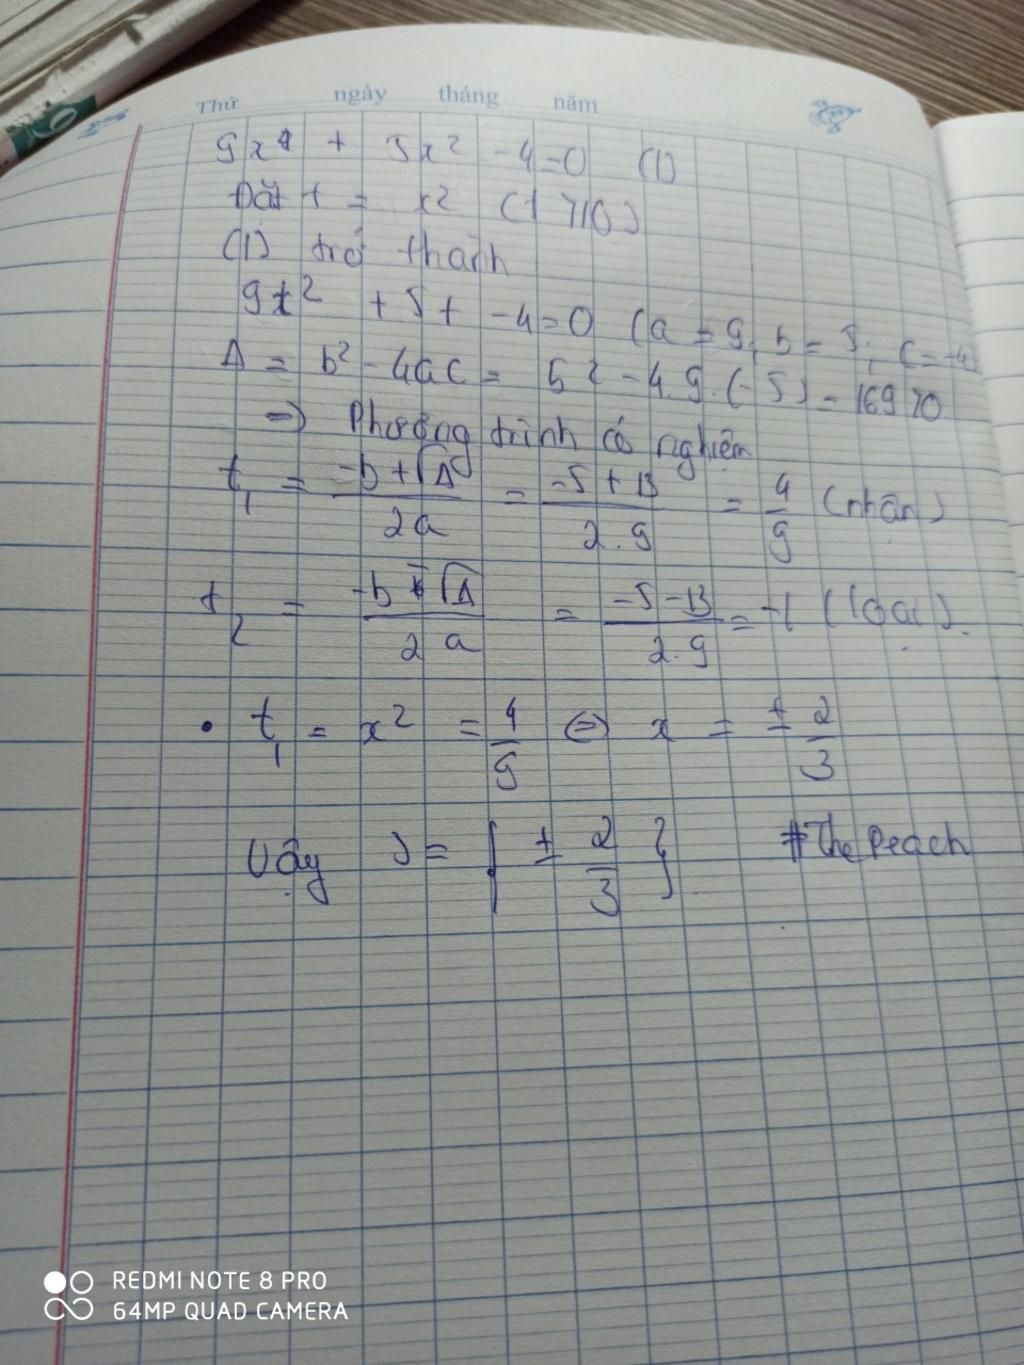 Thứ ngày tháng năm
9x⁴ + 5x² - 4 = 0 (1)
Đặt t = x² (t ≥ 0)
(1) trở thành
9t² + 5t - 4 = 0 (a = 9; b = 5; c = -4)
Δ = b² - 4ac = 5² - 4.9.(-5) = 169 > 0
=> Phương trình có nghiệm
t₁ = (-b + √Δ)/(2a) = (-5 + 13)/(2.9) = 4/9 (nhận)
t₂ = (-b - √Δ)/(2a) = (-5 - 13)/(2.9) = -1 (loại).
• t₁ = x² = 4/9 ⇔ x = ± 2/3
Vậy S = { ± 2/3 } #The Peach
REDMI NOTE 8 PRO
64MP QUAD CAMERA